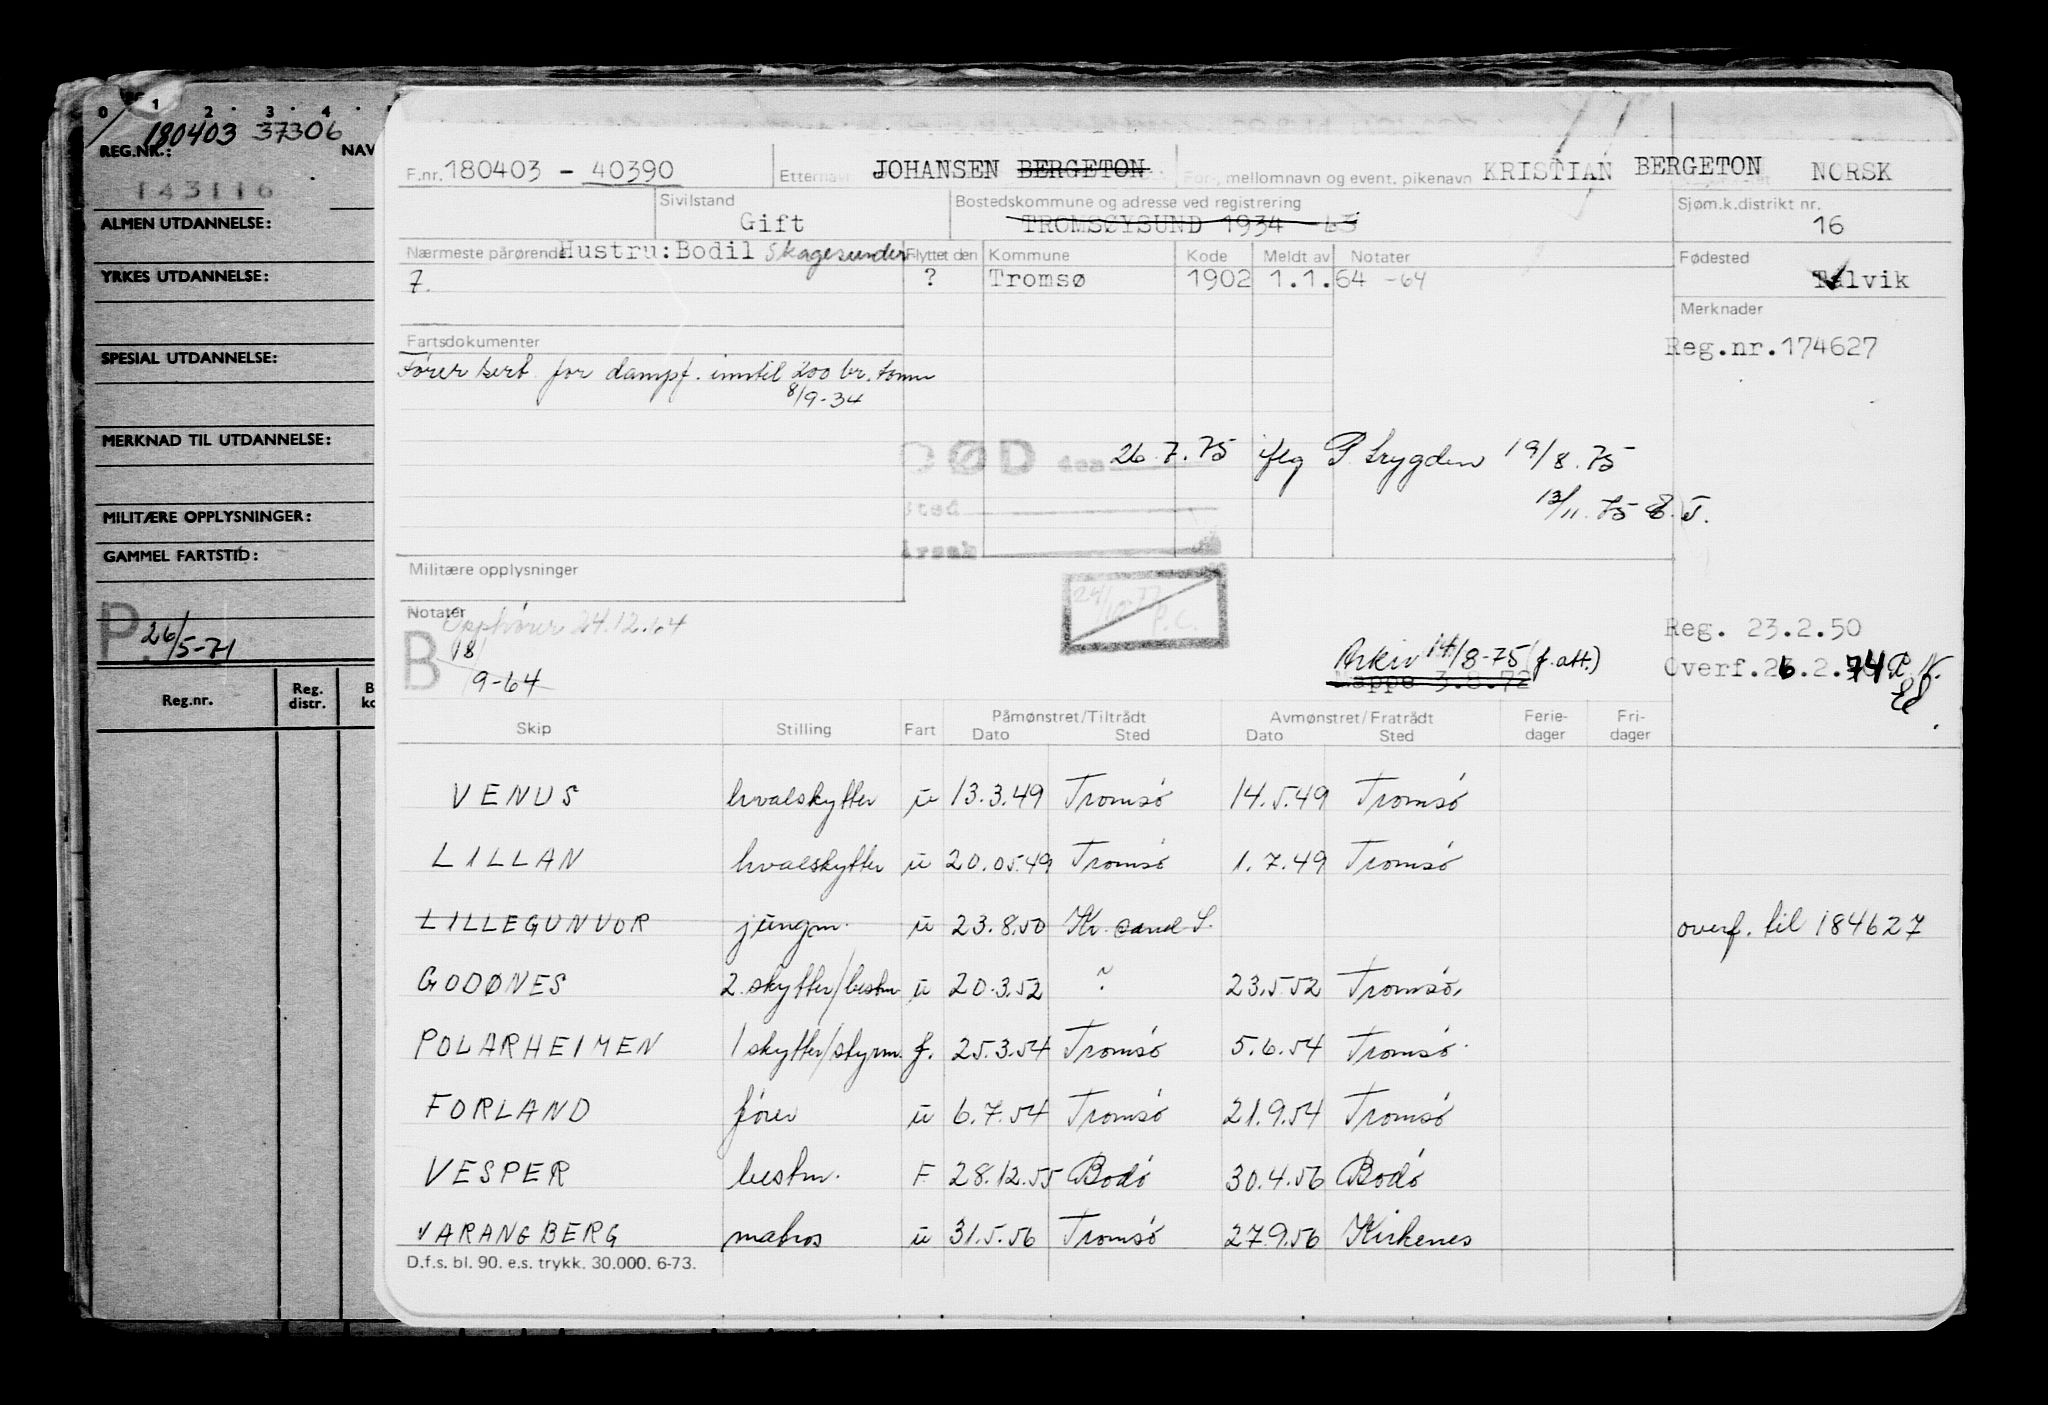 0 1 2 · 3 · 4 ·
180403 37306
REG.NR.: NAV
143116
ALMEN UTDANNELSE:
YRKES UTDANNELSE:
SPESIAL UTDANNELSE:
MERKNAD TIL UTDANNELSE:
MILITÆRE OPPLYSNINGER:
GAMMEL FARTSTID:
P. 26/5-71
Reg.nr. Reg. distr.
F.nr. 180403 - 40390 Etternavn JOHANSEN BERGETON For-, mellomnavn og event. pikenavn KRISTIAN BERGETON NORSK
Sivilstand Gift
Bostedskommune og adresse ved registrering
TROMSØYSUND 1934 - 63
Sjøm.k.distrikt nr.
16
Nærmeste pårørende Hustru: Bodil Skagesunden
7.
Flyttet den Kommune Kode Meldt av Notater
? Tromsø 1902 1.1.64 -64
Fødested
Talvik
Merknader
Reg.nr.174627
Fartsdokumenter
Fører sert. for dampf. inntil 200 br. tonn
8/9-34
DØD den 26.7.75 iflg P. Trygden 19/8.75
sted 13/11.75 E.T.
Årsak
Militære opplysninger
Notater Opphører 24.12.64
B 18/9-64
P.C.
Arkiv 14/8-75 (f.att.)
Mappe 3.8.72
Reg. 23.2.50
Overf.26.2.74
Skip Stilling Fart Påmønstret/Tiltrådt Dato Sted Avmønstret/Fratrådt Dato Sted Ferie- dager Fri- dager
VENUS hvalskytter u 13.3.49 Tromsø 14.5.49 Tromsø
LILLAN hvalskytter u 20.05.49 Tromsø 1.7.49 Tromsø
LILLEGUNVOR jungm. u 23.8.50 Kr.sand S. overf. til 184627
GODØNES 2. skytter/bestm. u 20.3.52 ? 23.5.52 Tromsø.
POLARHEIMEN 1 skytter/styrm. f. 25.3.54 Tromsø 5.6.54 Tromsø
FORLAND fører u 6.7.54 Tromsø 21.9.54 Tromsø
VESPER bestm. F 28.12.55 Bodø 30.4.56 Bodø
VARANGBERG matros u 31.5.56 Tromsø 27.9.56 Kirkenes
D.f.s. bl. 90. e.s. trykk. 30.000. 6-73.